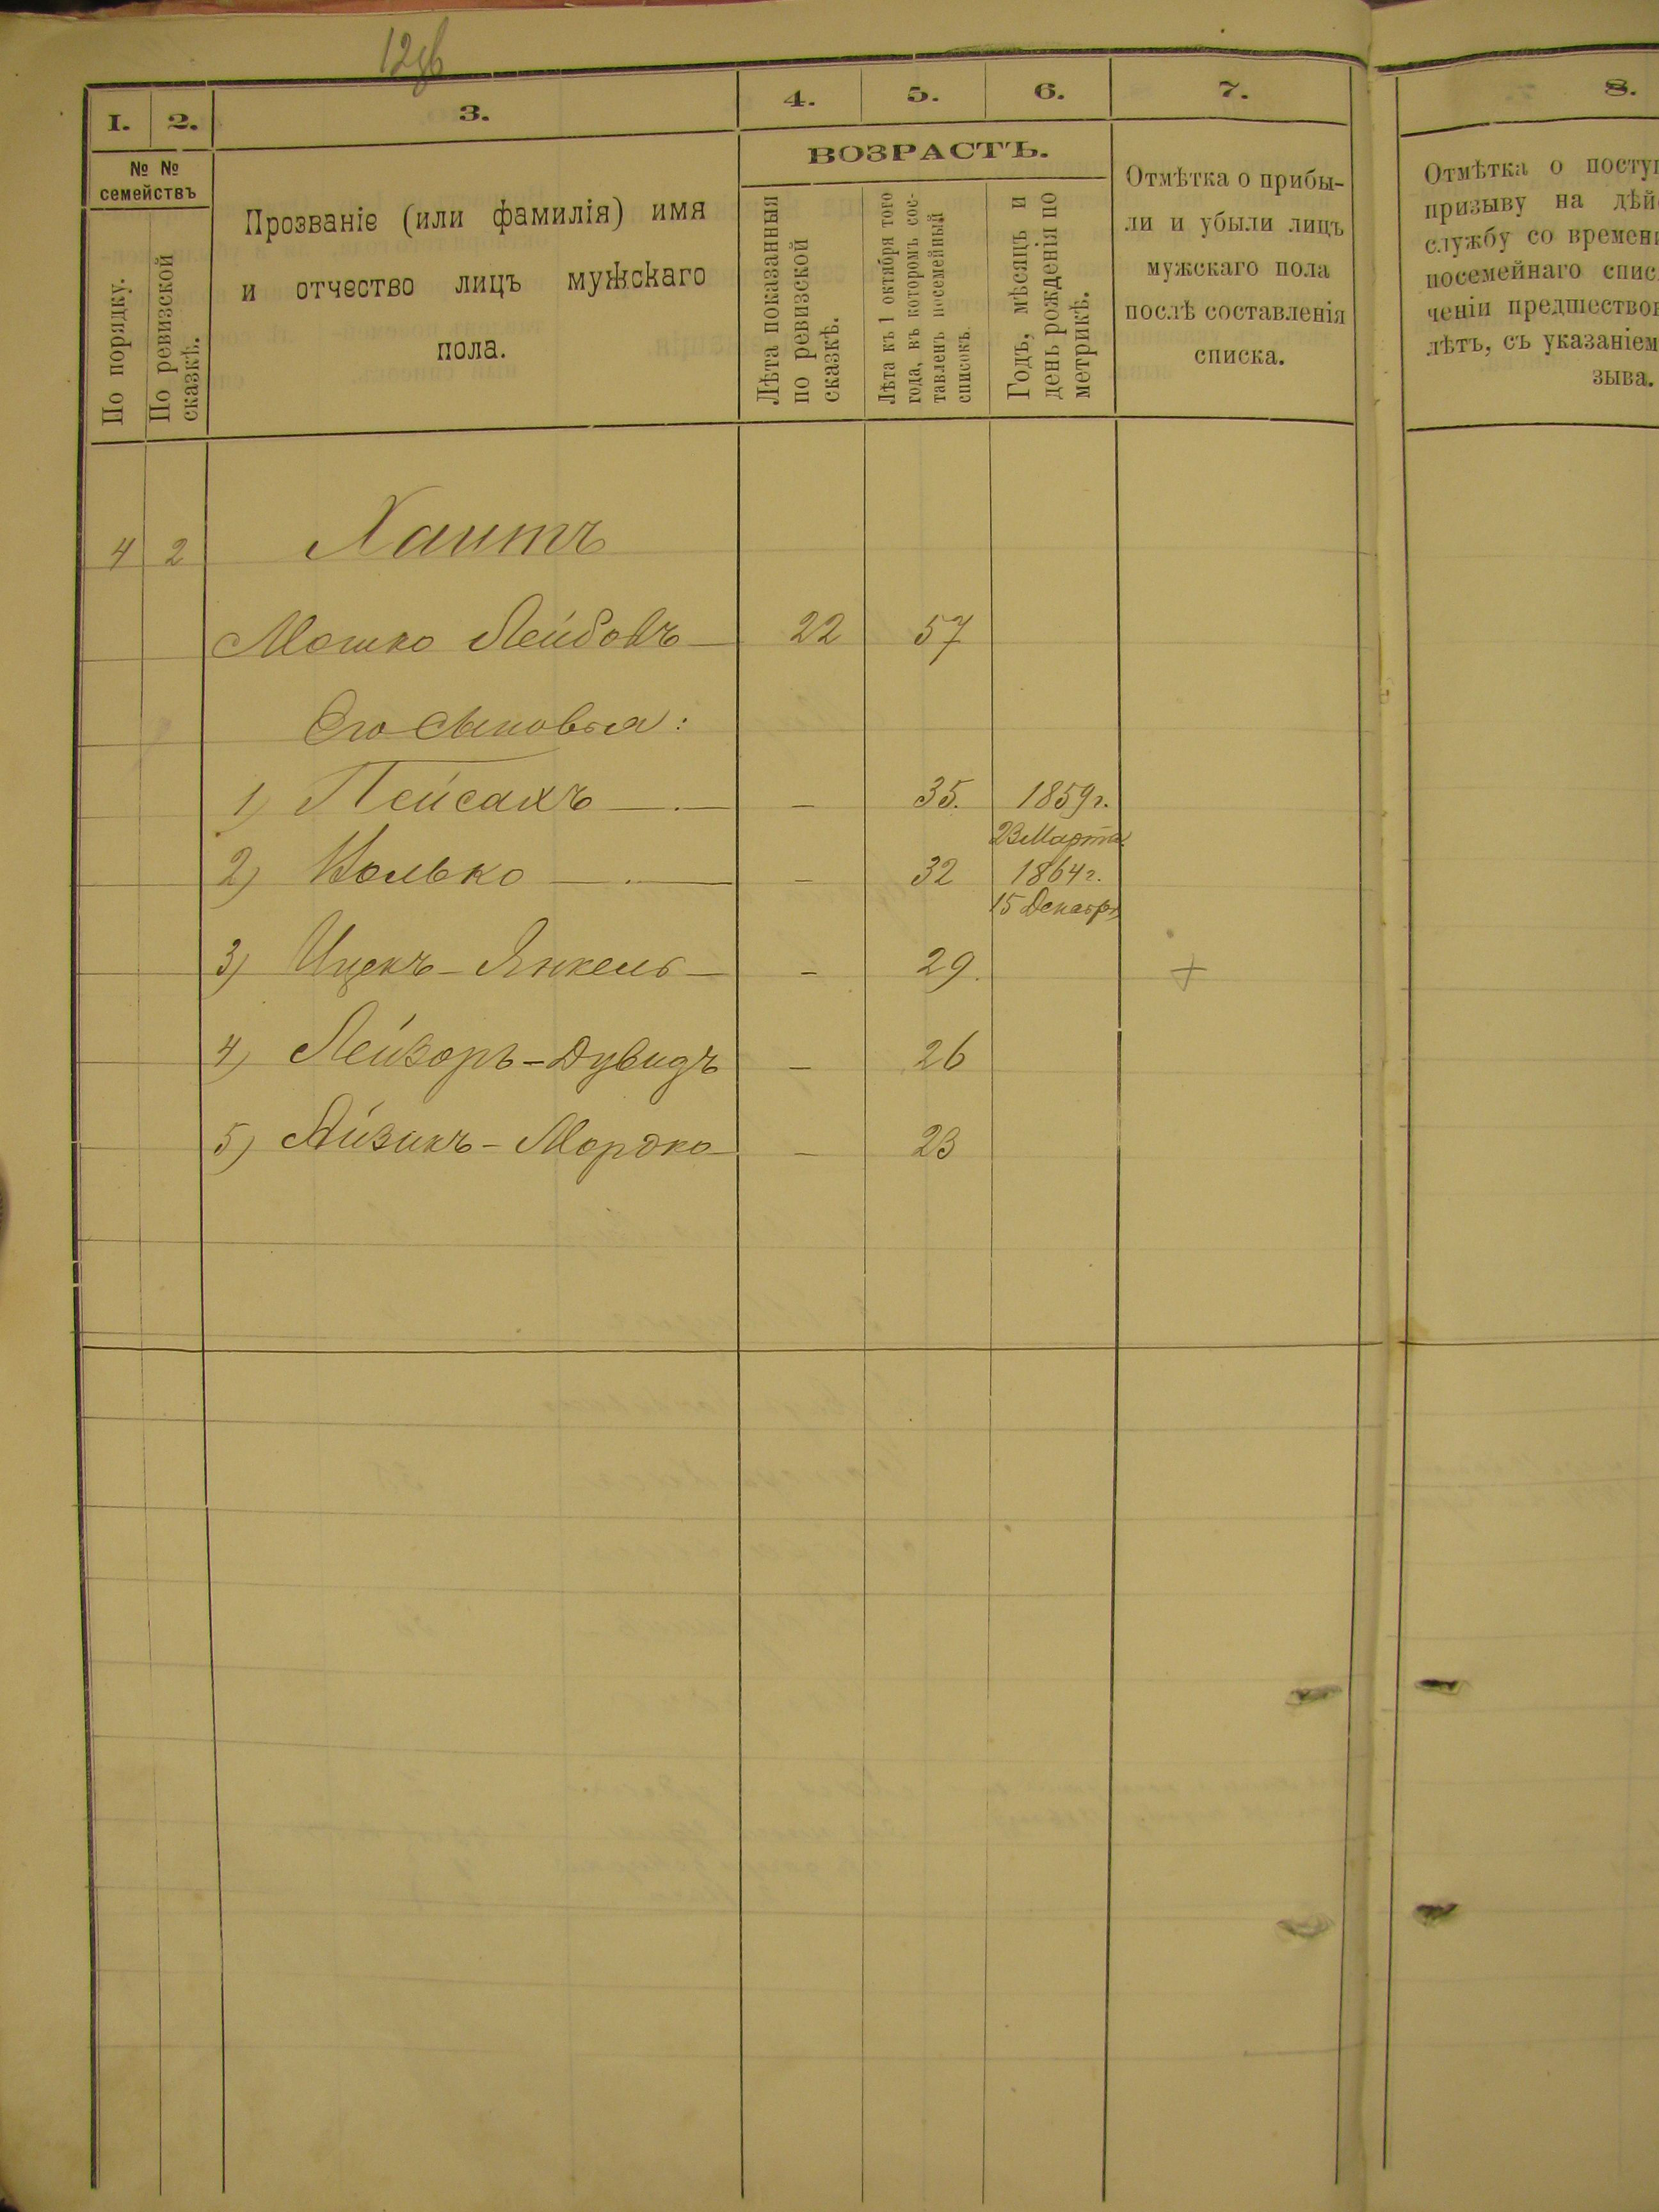 12об
I. 2. 3. 4. 5. 6. 7. 8.
№ №
семействъ
По порядку.
По ревизской
сказкѣ.
Прозваніе (или фамилія) имя
и отчество лицъ мужскаго
пола.
ВОЗРАСТЪ.
Лѣта показанныя
по ревизской
сказкѣ.
Лѣта къ 1 октября того
года, въ которомъ сос-
тавленъ посемейный
списокъ.
Годъ, мѣсяцъ и
день рожденія по
метрикѣ.
Отмѣтка о прибы-
ли и убыли лицъ
мужскаго пола
послѣ составленія
списка.
Отмѣтка о посту
призыву на дѣй
службу со времен
посемейнаго спис
ченіи предшество
лѣтъ, съ указаніем
зыва.
4 2 Хаитъ
Мошко Лейбовъ — 22 57
Его сыновья:
1) Пейсахъ — . — – 35. 1859 г.
23 Марта
2) Волько — . — – 32 1864 г.
15 Декабр.
3) Ицекъ - Янкель — – 29. +
4) Лейзоръ - Дувидъ – 26
5) Айзикъ - Мордко – 23